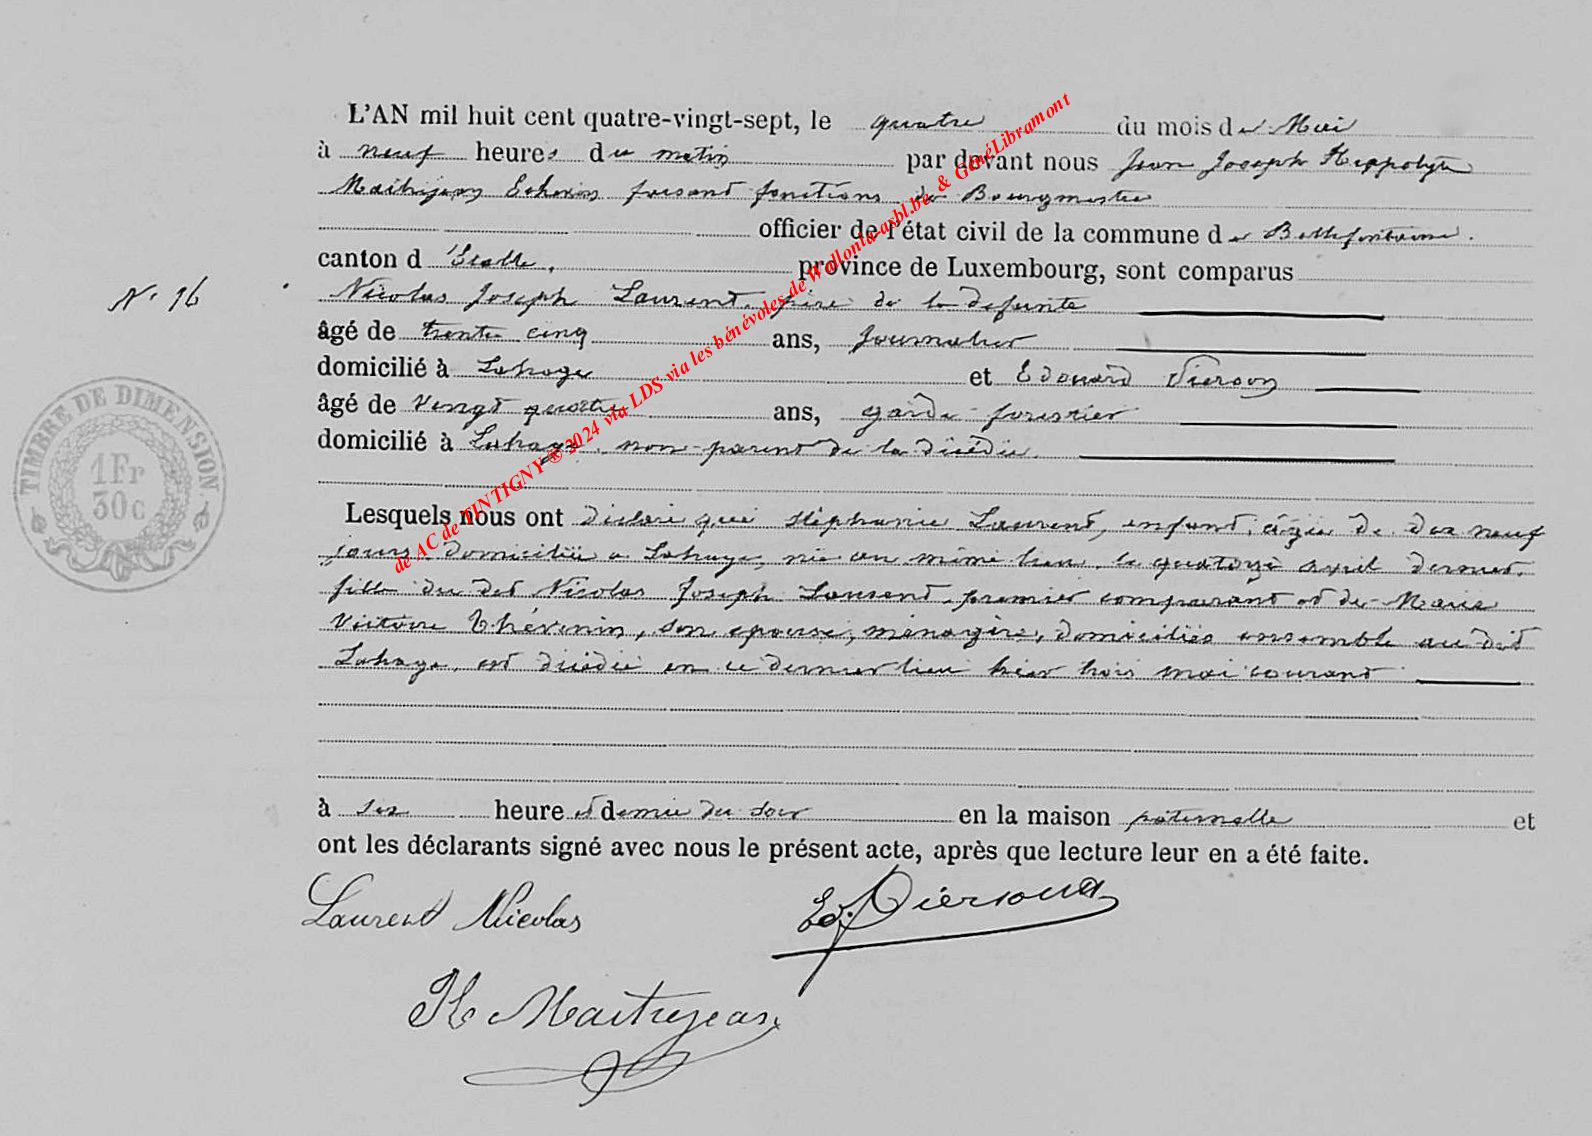 L'AN mil huit cent quatre-vingt-sept, le quatre du mois de Mai
à neuf heures du matin par devant nous Jean Joseph Hippolyte
Maitrejean Echevin faisant fonctions de Bourgmestre
officier de l'état civil de la commune de Bellefontaine.
canton d'Etalle, province de Luxembourg, sont comparus
N° 16
Nicolas Joseph Laurent, père de la défunte
âgé de trente cinq ans, journalier
domicilié à Lahage et Edouard Pierson
âgé de vingt quatre ans, garde-forestier
domicilié à Lahage, non-parent de la décédée.
TIMBRE DE DIMENSION
1 Fr
30 c
Lesquels nous ont déclaré que Stéphanie Laurent, enfant, âgée de dix neuf
jours domiciliée à Lahage, née au même lieu, le quatorze avril dernier,
fille du dit Nicolas Joseph Laurent, premier comparant et de Marie
Victoire Thévenin, son épouse, ménagère, domiciliés ensemble au dit
Lahage, est décédée en ce dernier lieu hier trois mai courant
à six heure et demie du soir en la maison paternelle et
ont les déclarants signé avec nous le présent acte, après que lecture leur en a été faite.
Laurent Nicolas
Ed. Pierson
H Maitrejean
de AC de TINTIGNY ® 2024 via LDS via les bénévoles de Wallonia-asbl.be & GénéLibramont